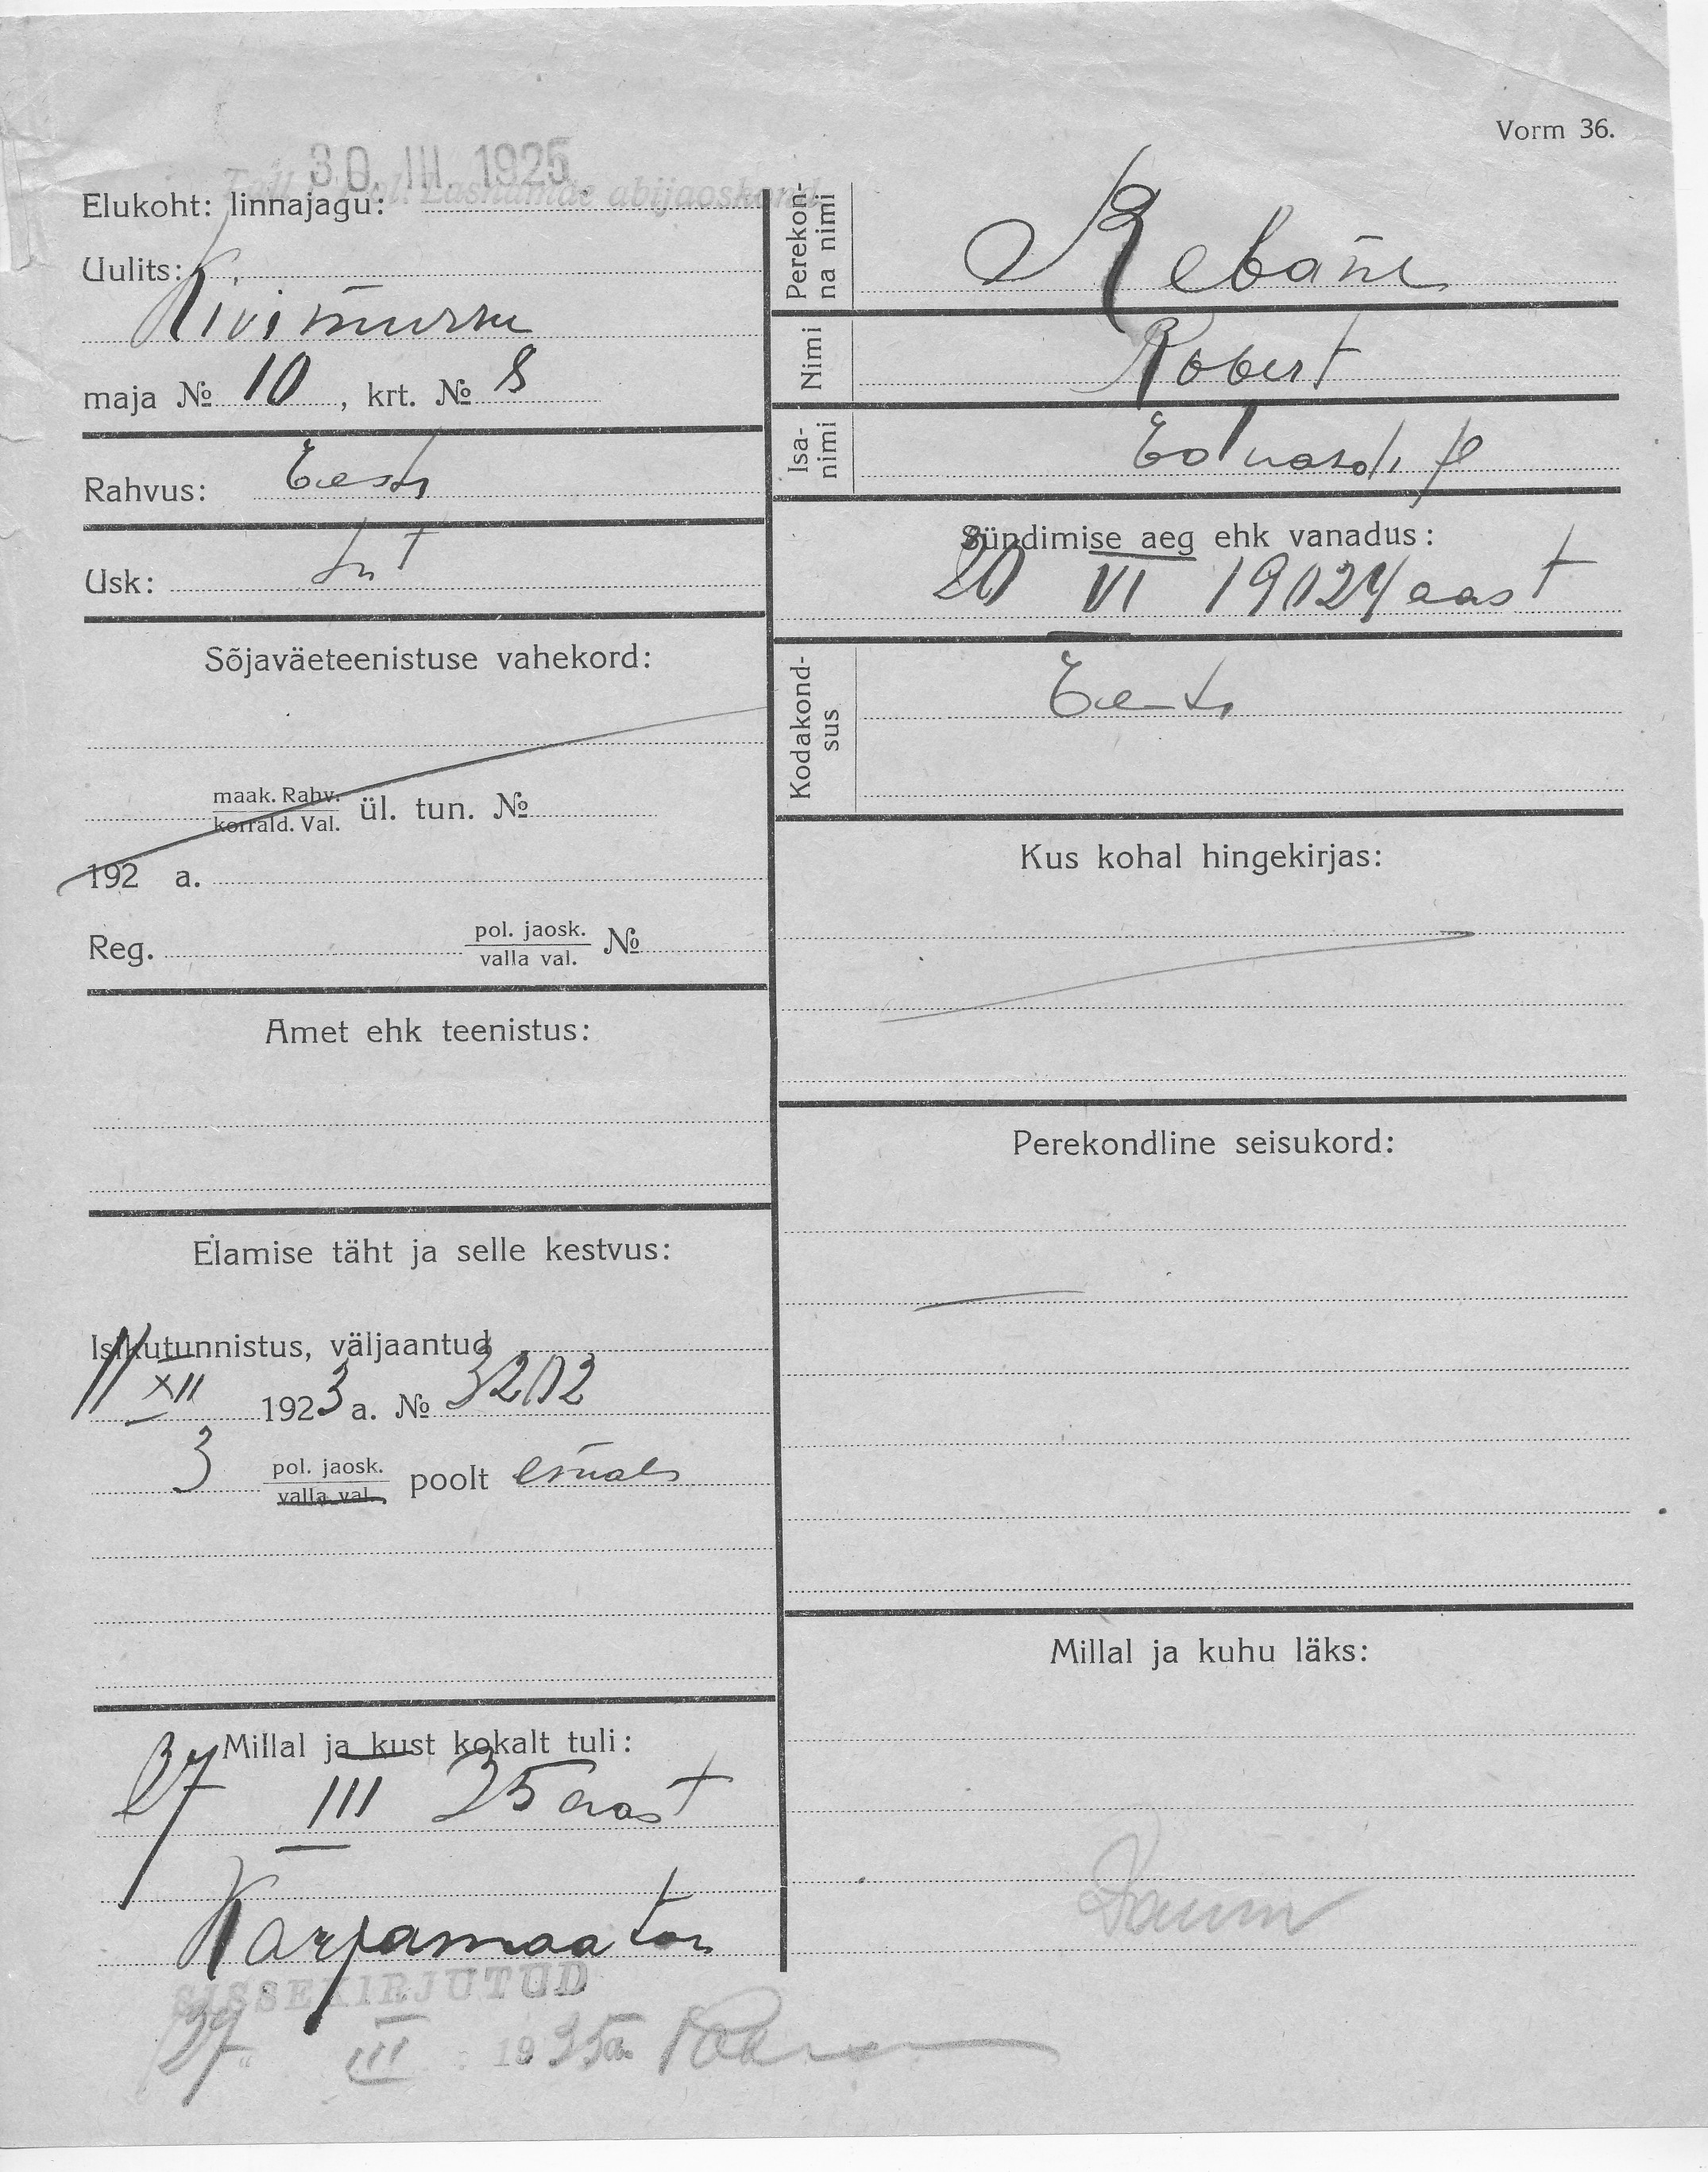 Vorm 36.
30. III. 1925.
Tall. pol. Lasnamäe abijaoskond
Elukoht: linnajagu:
Uulits:
Kivimurru
maja № 10, krt. № 8
Rahvus: Eesti
Usk: Lut
Sõjaväeteenistuse vahekord:
maak. Rahv.
korrald. Val. ül. tun. №
192 a.
Reg. pol. jaosk. №
valla val.
Amet ehk teenistus:
Elamise täht ja selle kestvus:
Isikutunnistus, väljaantud
11 XII 1923 a. № 3202
3 pol. jaosk. poolt
valla val.
Millal ja kust kokalt tuli:
27 III 25 aast
Karjamaa tän
SISSEKIRJUTUD
27 III 1925 a.
Perekon-
na nimi Rebane
Nimi Robert
Isa-
nimi Eduardi p
Sündimise aeg ehk vanadus:
20 VI 1902 aast
Kodakond-
sus Eesti
Kus kohal hingekirjas:
Perekondline seisukord:
Millal ja kuhu läks: